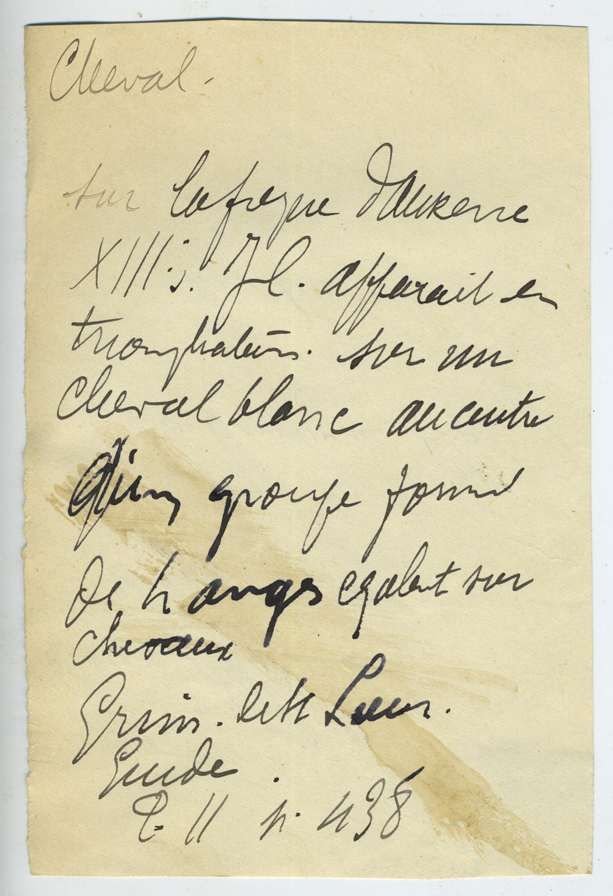 Cheval.
sur la fresque d'Auxerre
XIII s. J. C. apparait en
triomphateur. sur un
cheval blanc au centre
d'un groupe formé
de 4 anges egalent sur
chevaux
Guide
p. 438